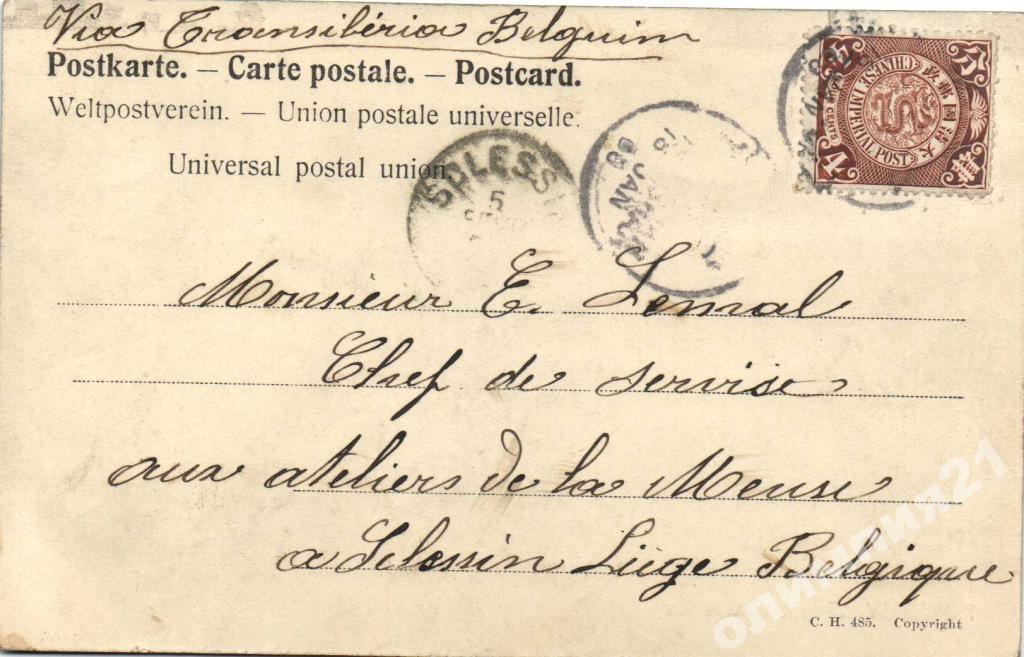 Via Transibéria Belguim
Postkarte. – Carte postale. – Postcard.
Weltpostverein. — Union postale universelle.
Universal postal union.
CHINESE IMPERIAL POST
大清國郵政
4
SCLESSIN
5
18 JAN 08
Monsieur E. Lemal
Chef de servise
aux ateliers de la Meuse
a Sclessin Liége Belgique
C. H. 485. Copyright
олимпил21